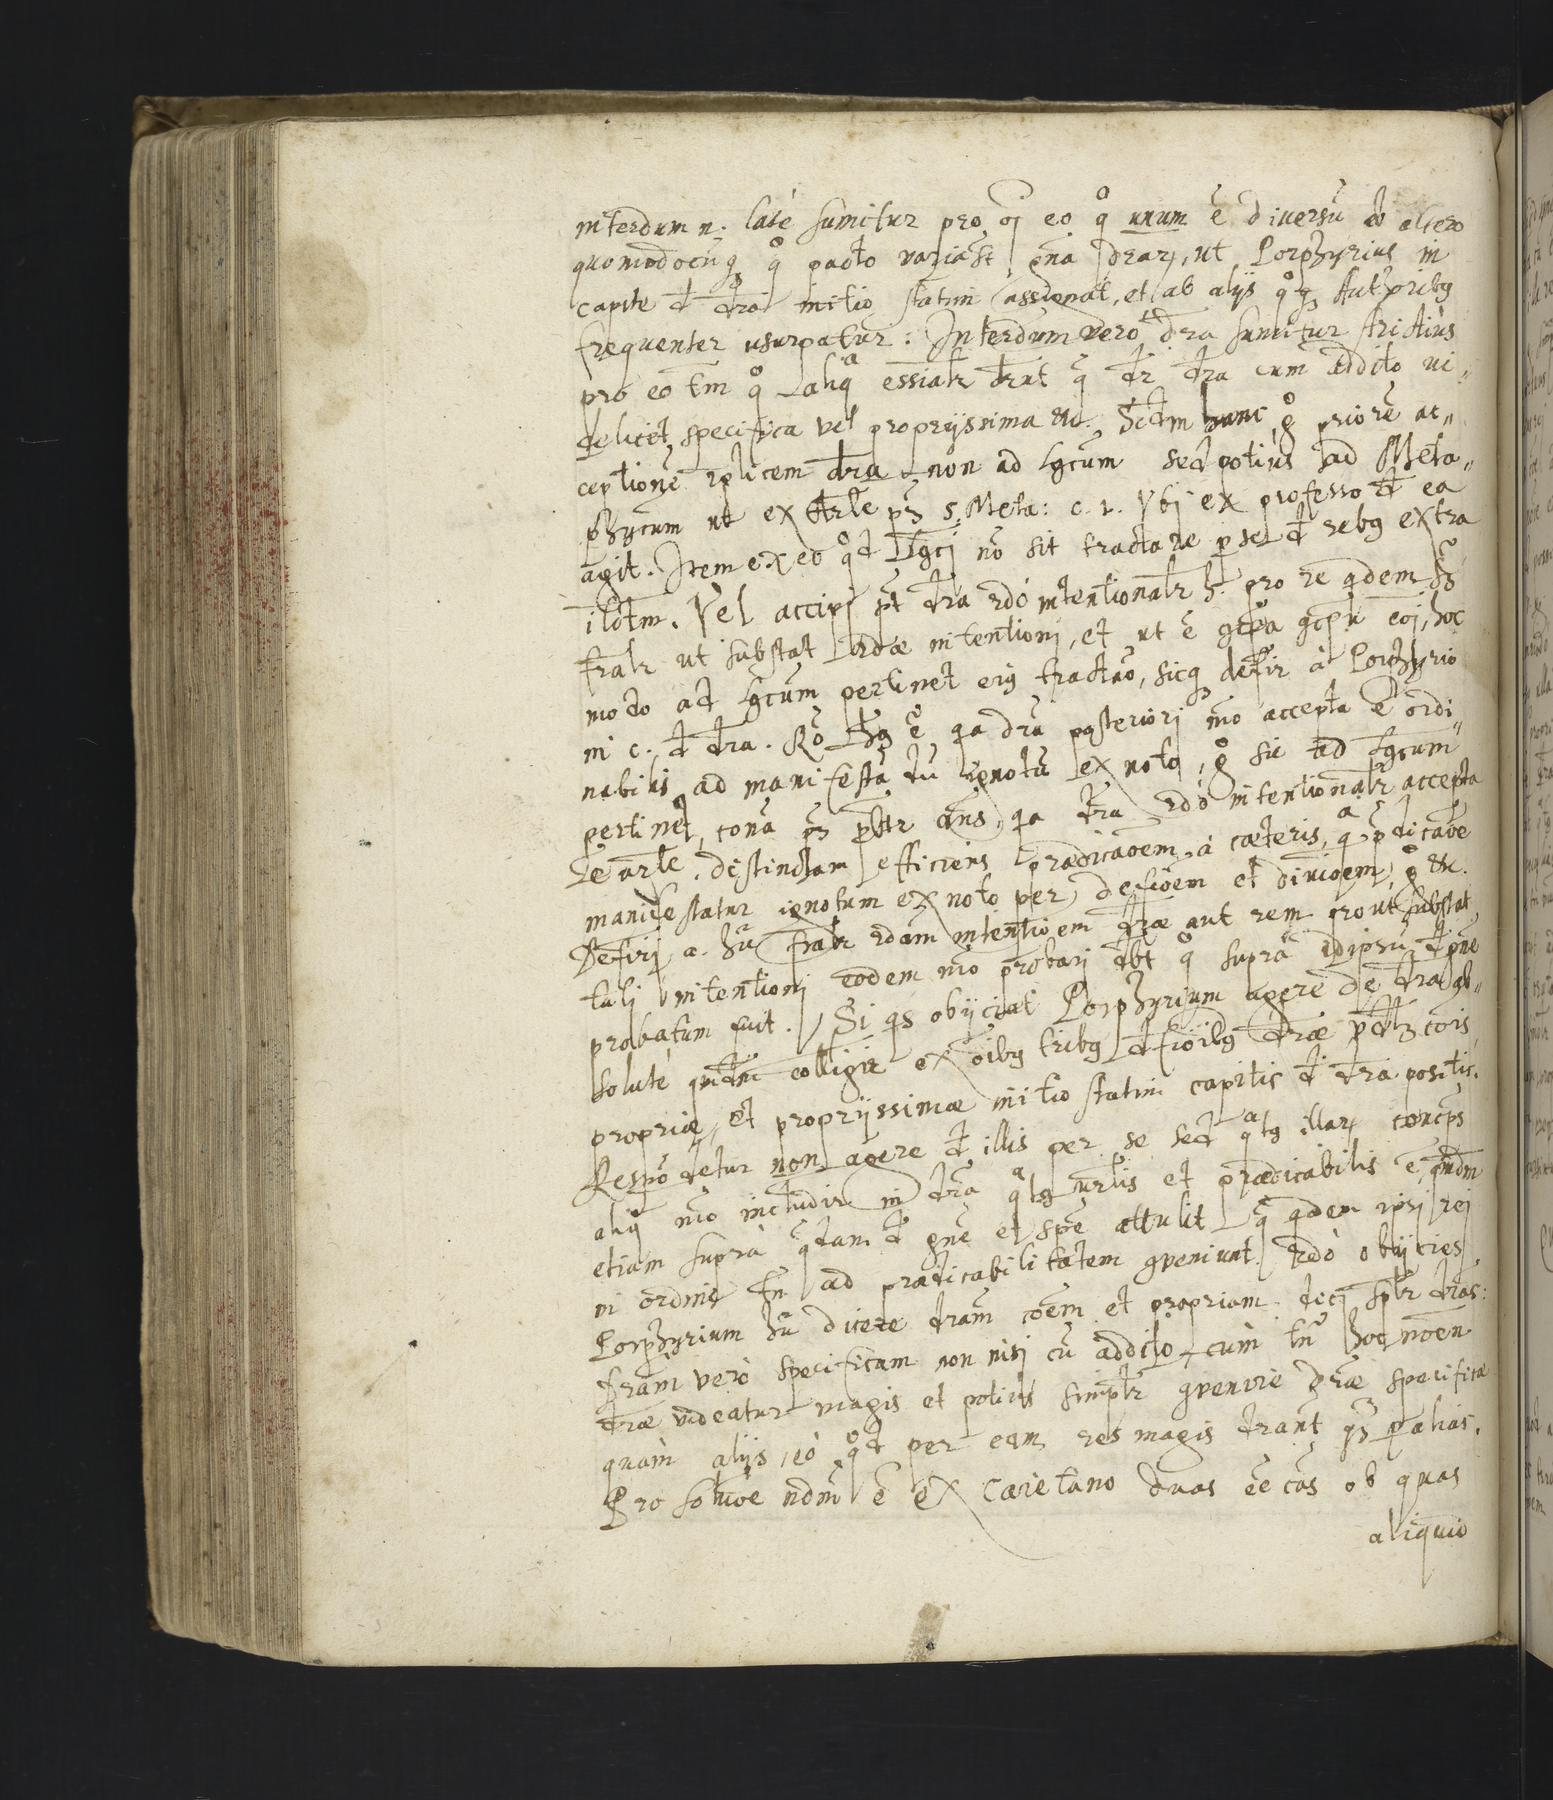 interdum n. latè sumitur pro oī eo q̊ unum ē diversū ab altero
quomodocūq q̊ pacto varia sit oīna drar, ut Porphyrius in
capite d dra initio statim assignat, et ab alijs q̊q Autoribq
frequenter usurpatur: Interdum verò dra sumitur strictiùs
pro eo tm q̊ aliq̊ essialr drut q̄ dr dra cum addito vi„
delicet specifica vel proprijssima etc. Scdm hanc g̊ priorē ac„
ceptionē rplicem dra non ad Lgcum sed potiùs ad Meta„
phycum ut ex Arle pz 5. Meta: c. 1. Vbj ex professo d ea
agit. Item ex eo q̊d Lgcj nō sit tractare p se d rebq extra
illm. Vel accipj pt dra 2dó intentionalr h. pro re qdem hz
fralr ut substat 2dæ intentioni, et ut ē gcpta gcpti eoj, hoc
modo ad Lgcum pertinet eiq tractaō, sicq defir à Porphyrio
in c. d dra. Rō hq ē qa dra posteriorj mō accepta ē ordi„
nabilis ad manifestādū ignotū ex noto, g̊ sic ad Lgcum
pertinet, cona pz pbtr ans, qa dra 2dò intentionalr accepta
distinctam efficiens prædicaōem à cæteris, q prdicaōe
manifestatur ignotum ex noto per defiōem et diviōem, g̊ etc.
Defirj a. hū fralr 2dam intentiōem dræ aut rem prout substat
talj intentionj eodem mō probarj dbt q̊ suprà idipsū d gne
probatum fuit. Si qs obijciat Porphyrium agere de dra ab„
solutè qndm colligit ex oibq tribq defiōibq dræ cōis,
propriæ, et proprijssimæ initio statim capitis d dra positis.
Respōdetur non agere d illis per se sed q̊tq illar concps
aliq̊ mō includir in dra q̊tq urlis et prædicabilis ē, qndm
etiam suprà q̄dam d gne et spē attulit q̄ qdem ipsi rej
in ordine tn ad prædicabilitatem gveniunt. 2dò obijcies
Porphyrium hū dicere dram cōem et propriam dicj splr dras:
dram verò specificam non nisj cū addito, cùm tn hoc nōen
dræ videatur magis et potiùs simplr gvenire dræ specificæ
quàm alijs, eò q̊d per eam res magis drant qz p alias.
Pro solvōe ndm ē ex Caietano duas ēe cās ob quas
aliquid